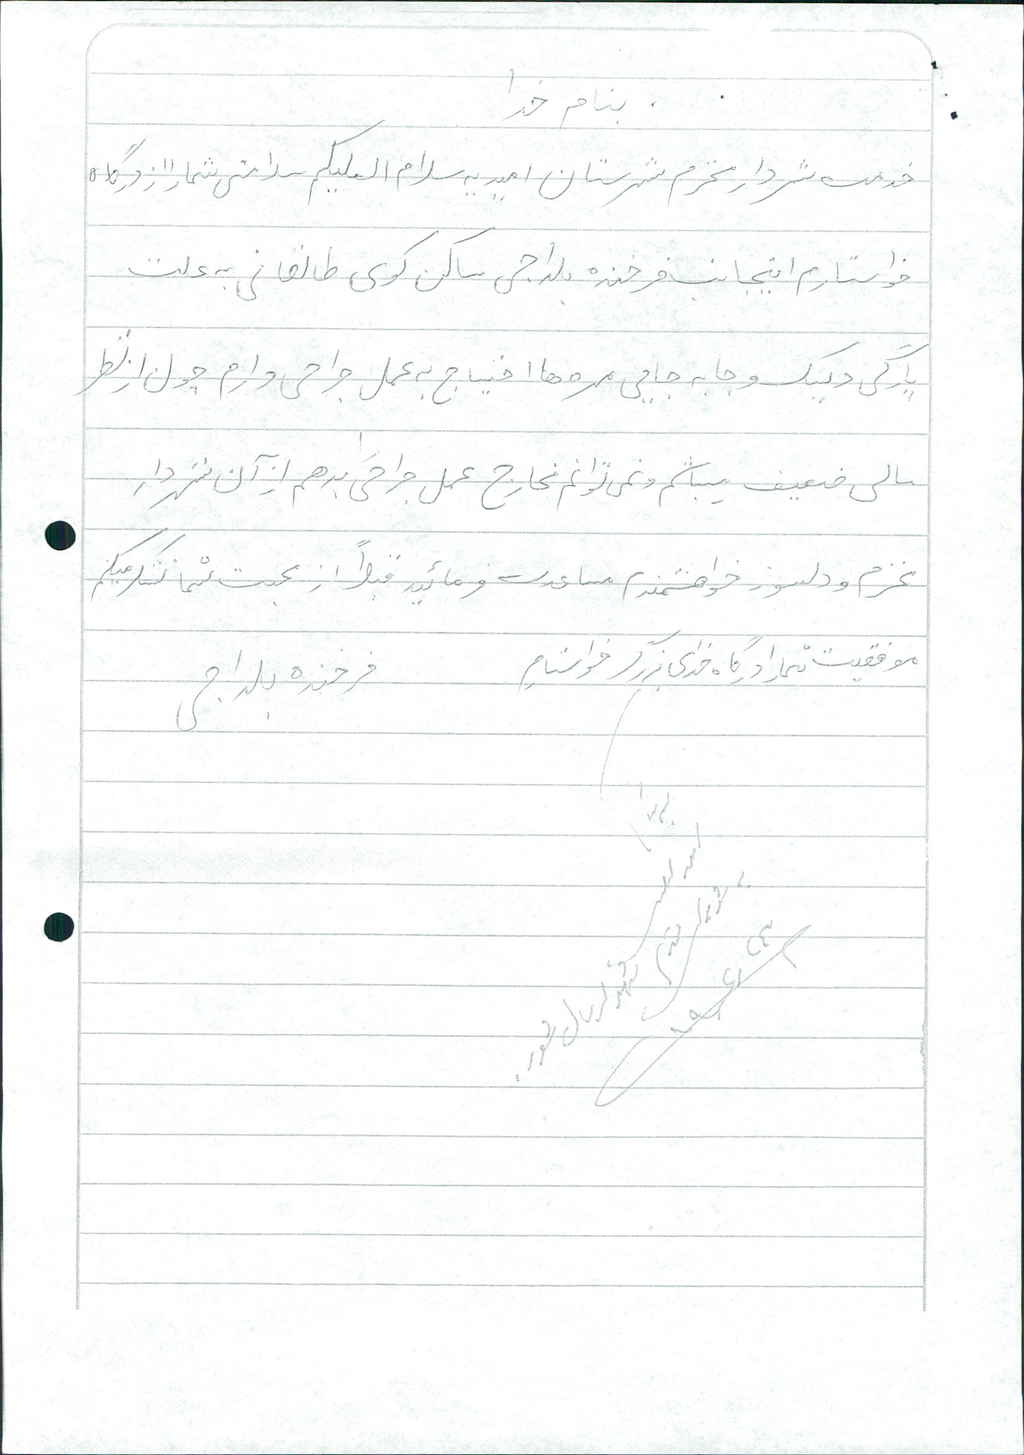 بنام خدا
خدمت شهردار محترم شهرستان امیدیه سلام العلیکم سلامتی شما را از درگاه
خواستارم اینجانب فرخنده بلداجی ساکن کوی طالقانی به علت
پارگی دیسک و جا به جایی مهره ها احتیاج به عمل جراحی دارم چون از نظر
مالی ضعیف میباشم و نمی توانم مخارج عمل جراحی بدهم از آن شهردار
محترم و دلسوز خواهشمندم مساعدت فرمائید قبلاً از محبت شما تشکر میکنم
موفقیت شما را درگاه خدای بزرگ خواستارم
فرخنده بلداجی